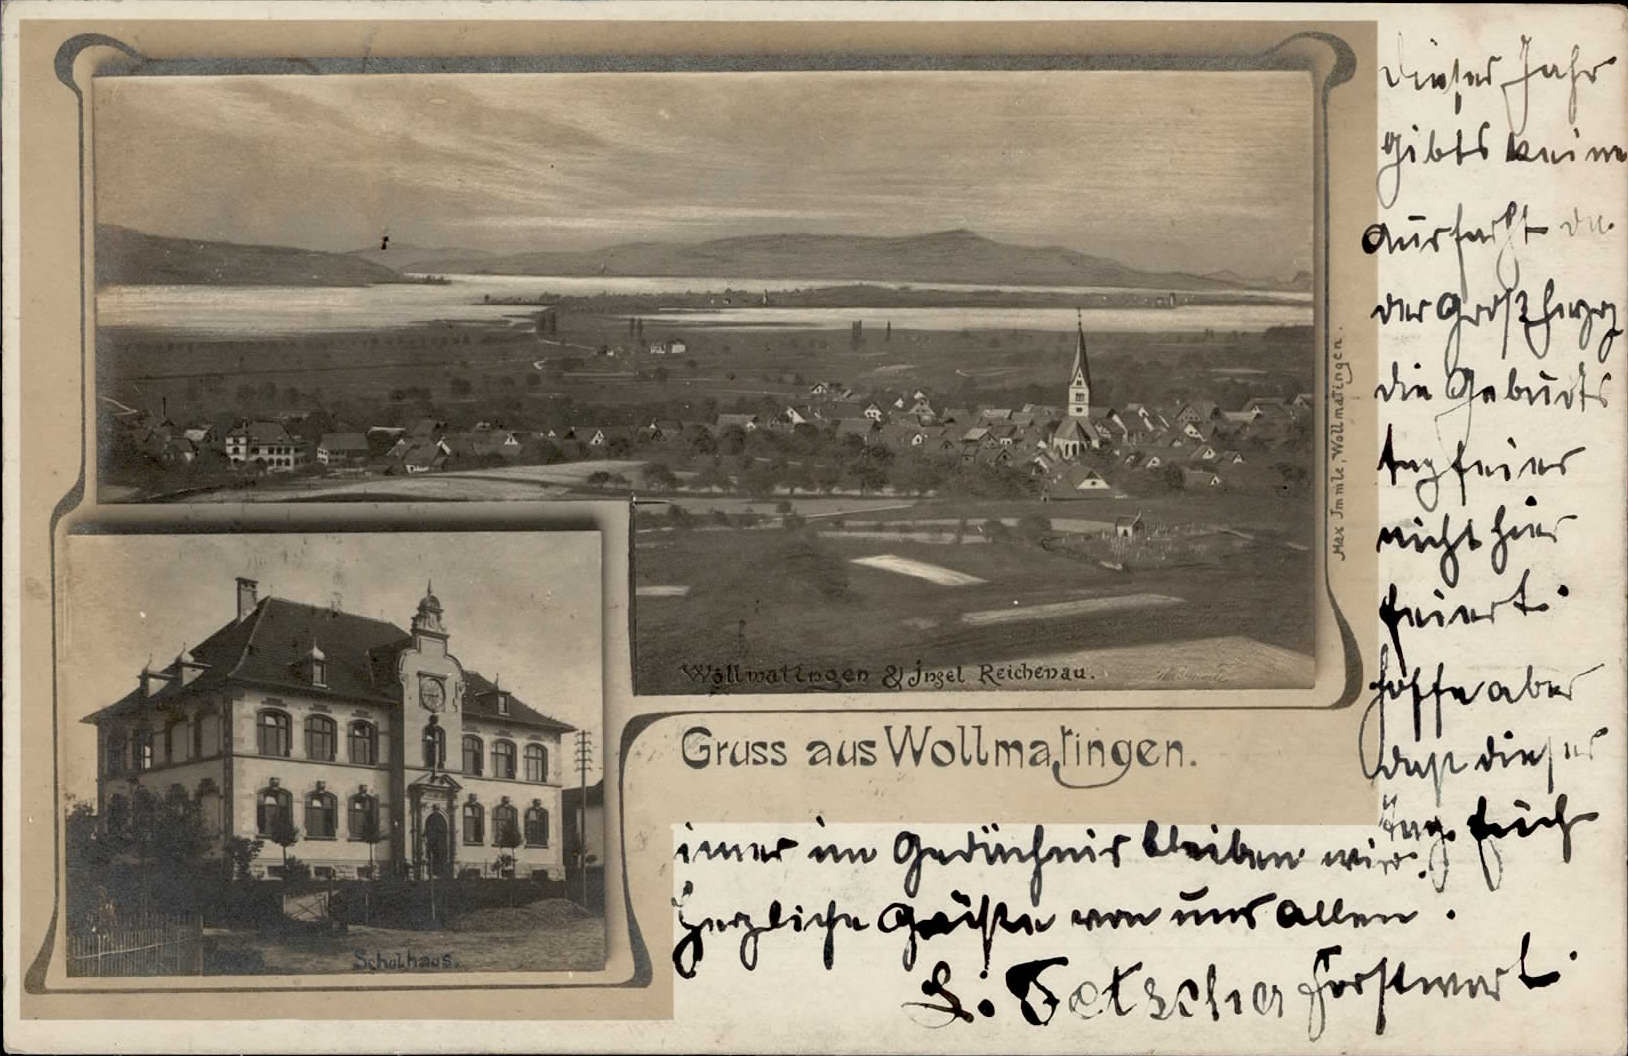 Wollmatingen & Jnsel Reichenau.
Max Jmmle, Wollmatingen.
Schulhaus.
Gruss aus Wollmatingen.
Dieses Jahr
gibts keine
Ausfahrt da
der Großherzog
die Geburts
tagfeier
nicht hier
feiert.
hoffe aber
daß dieser
Tag Euch
imer im Gedächnis bleiben wird.
Herzliche Grüße von uns allen.
Forstwart